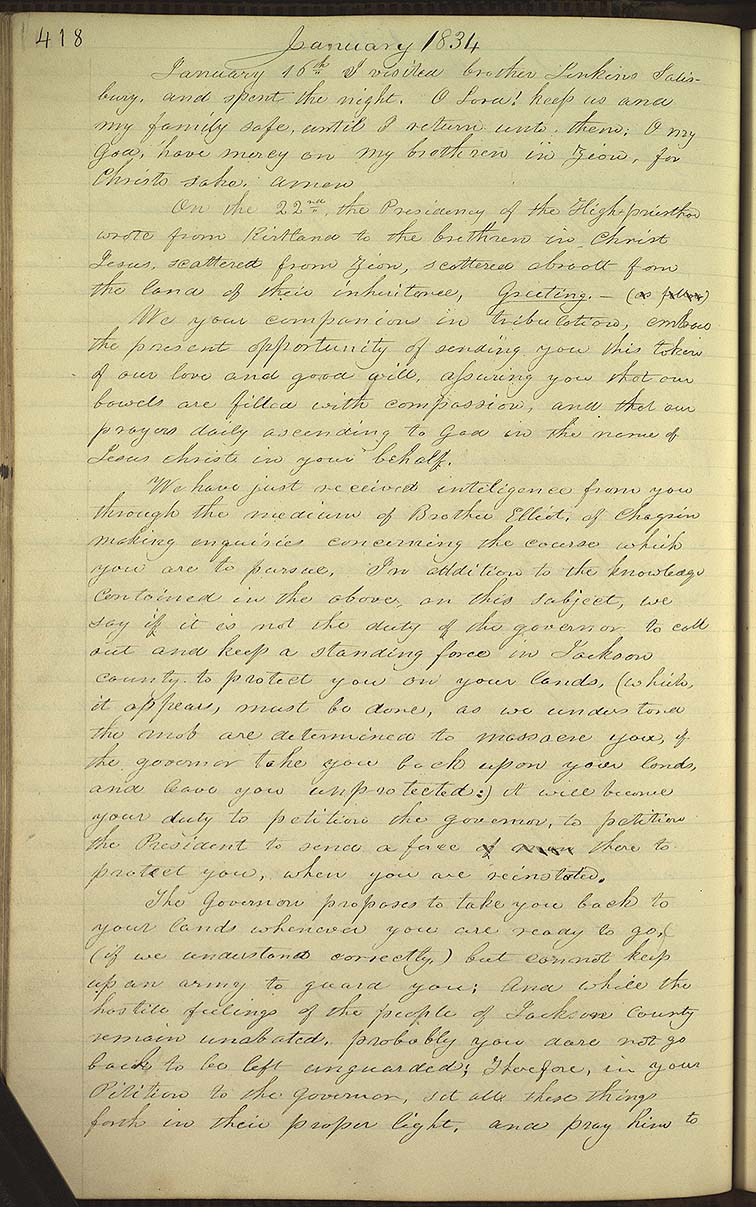 418
January 1834
January 16th I visited brother Jenkins Salis-
bury, and spent the night. O Lord! keep us and
my family safe, until I return unto them; O my
God, have mercy on my brethren in Zion, for
Christs sake. amen
On the 22nd, the Presidency of the High-priesthoo
wrote from Kirtland to the brethren in Christ
Jesus, scattered from Zion, scattered abroad from
the land of their inheritance, Greeting.— (as follow)
We your companions in tribulation, embrace
the present opportunity of sending you this token
of our love and good will, assuring you that our
bowels are filled with compassion, and that our
prayers daily ascending to God in the name of
Jesus christ in your behalf.
We have just received inteligence from you
through the medium of Brother Elliot, of Chagrin
making enquiries concerning the course which
you are to pursue. In addition to the knowledge
contained in the above, on this subject, we
say if it is not the duty of the governor to call
out and keep a standing force in Jackson
county to protect you on your lands, (which,
it appears, must be done, as we understand
the mob are determined to massacre you, if
the governor take you back upon your lands,
and leave you unprotected:) it will become
your duty to petition the governor, to petition
the President to send a force of men there to
protect you, when you are reinstated.
The Governor proposes to take you back to
your lands whenever you are ready to go,
(if we understand correctly,) but cannot keep
up an army to guard you; And while the
hostile feelings of the people of Jackson County
remain unabated, probably you dare not go
back, to be left unguarded; Therefore, in your
Pitition to the Governor, set all these things
forth in their proper light, and pray him to